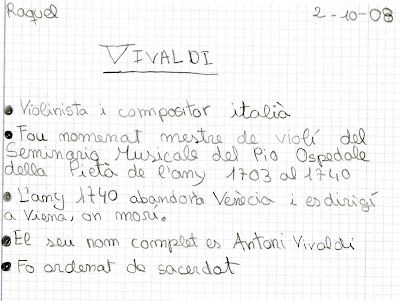 Raquel 2-10-08
VIVALDI
• Violinista i compositor italià
• Fou nomenat mestre de violí del
Seminario Musicale del Pio Ospedale
della Pietà de l'any 1703 al 1740
• L'any 1740 abandona Venècia i es dirigí
a Viena, on morí.
• El seu nom complet es Antoni Vivaldi
• Fo ordenat de sacerdat